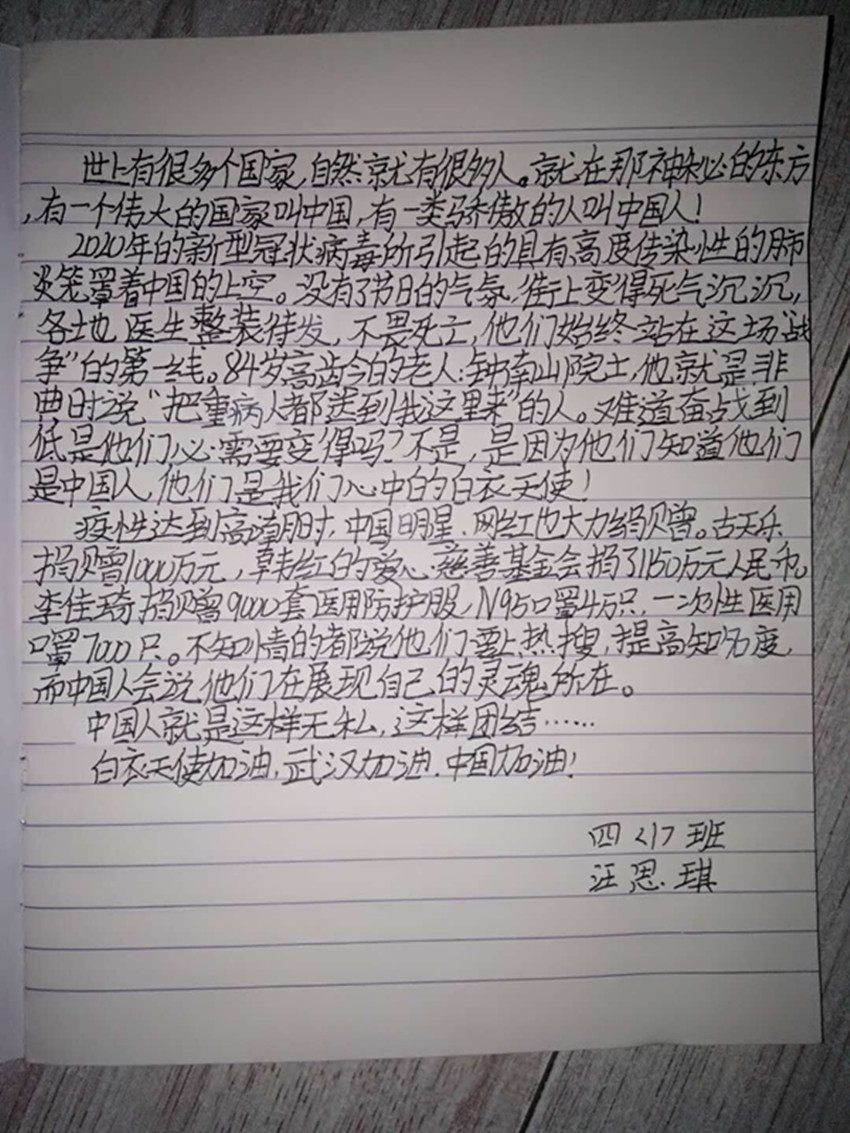 世上有很多个国家,自然就有很多人。就在那神秘的东方
,有一个伟大的国家叫中国,有一类骄傲的人叫中国人!
2020年的新型冠状病毒所引起的具有高度传染性的肺
炎笼罩着中国的上空。没有了节日的气氛,街上变得死气沉沉,
各地医生整装待发,不畏死亡,他们始终站在这场“战
争”的第一线。84岁高龄的老人:钟南山院士,他就是非
典时说“把重病人都送到我这里来”的人。难道奋战到
低是他们必需要变得吗?不是,是因为他们知道他们
是中国人,他们是我们心中的白衣天使!
疫性达到高峰时,中国明星、网红也大力捐赠。古天乐
捐赠1000万元,韩红的爱心慈善基金会捐了1150万元人民币。
李佳琦捐赠9000套医用防护服,N95口罩4万只,一次性医用
口罩7000只。不知情的都说他们要上热搜,提高知名度,
而中国人会说他们在展现自己的灵魂所在。
中国人就是这样无私,这样团结……
白衣天使加油,武汉加油.中国加油!
四<1>班
汪思琪